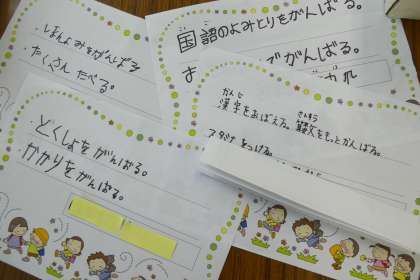 ・ほんよみをがんばる
・たくさん たべる。
こくご
国語のよみとりをがんばる。
でがんばる。
かんじ
漢字をおぼえる。
さんすう
算数をもっとがんばる。
つける。
・どくしょをがんばる。
・かかりをがんばる。